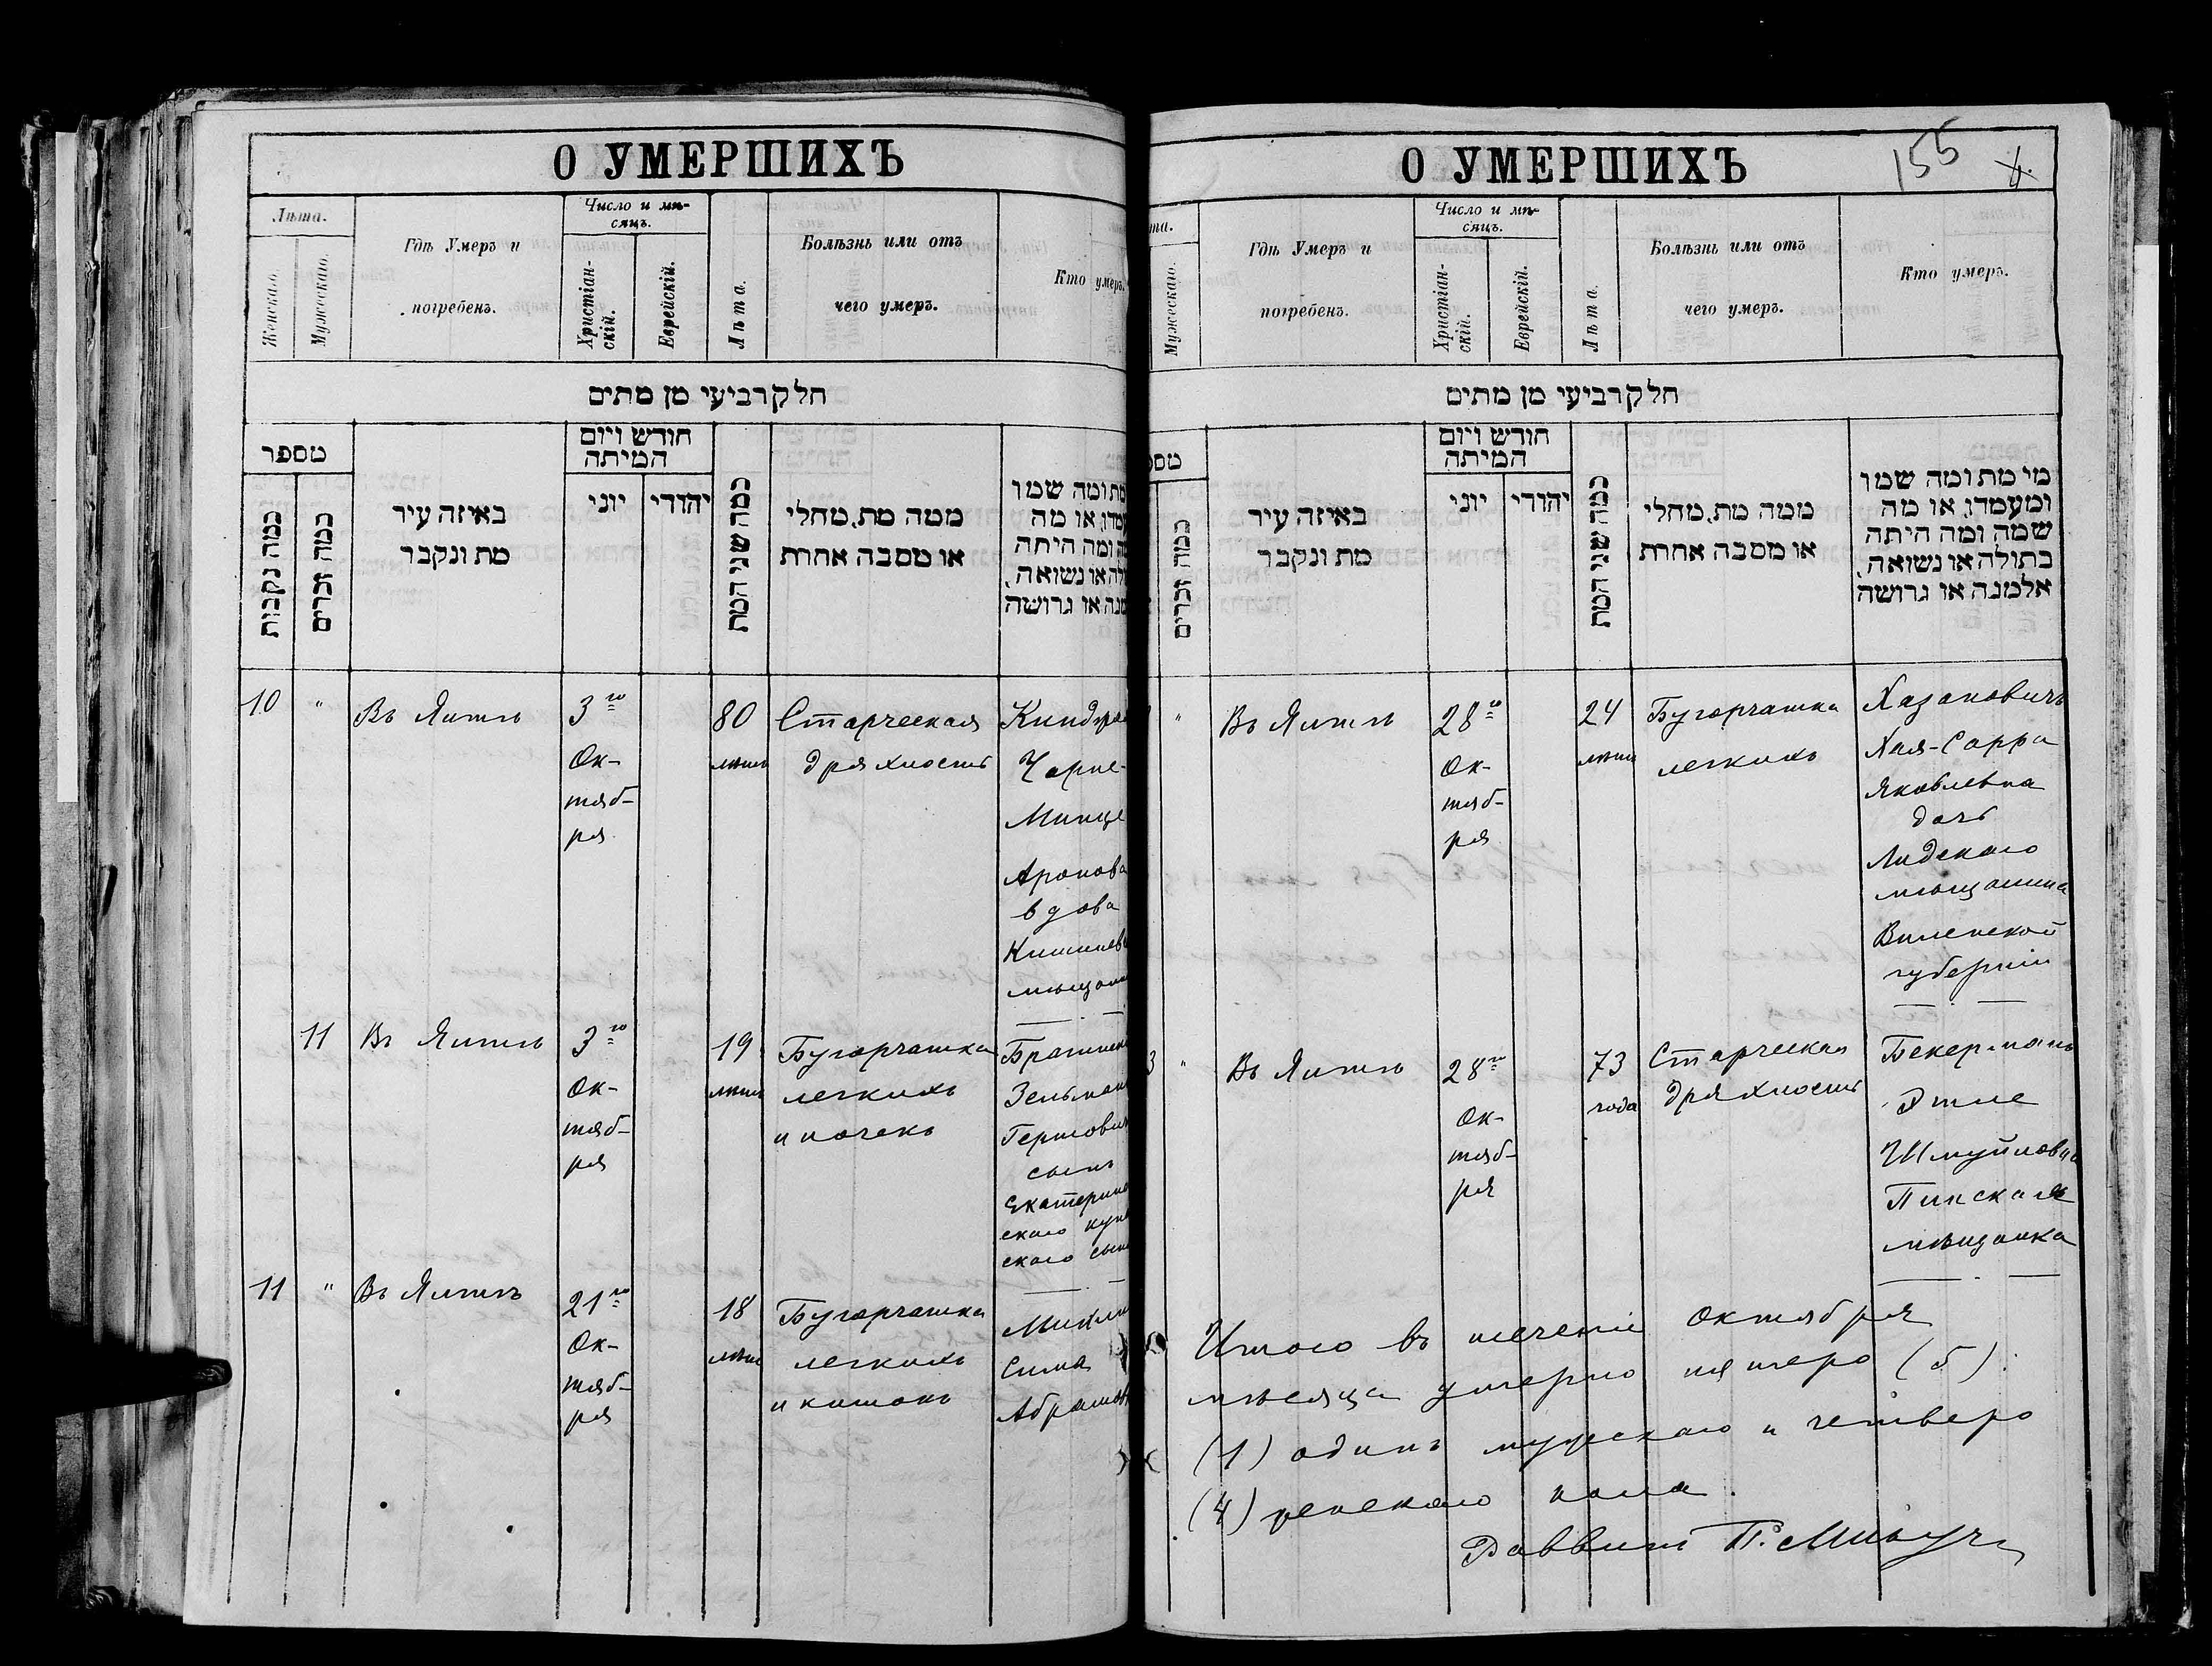 О УМЕРШИХЪ
Лѣта.
Женскаго.
Мужескаго.
Гдѣ Умеръ и
погребенъ.
Число и мѣ-
сяцъ.
Христіан-
скій.
Еврейскій.
Лѣта.
Болѣзнь или отъ
чего умеръ.
Кто умеръ.
חלק רביעי מן מתים
מספר
כמה נקבות
כמה זכרים
באיזה עיר
מת ונקבר
חודש ויום
המיתה
יוני
יהודי
כמה שני המת
ממה מת, מחלי
או מסבה אחרת
מת ומה שמו
או מה
ומה היתה
או נשואה,
או גרושה
10 " Въ Ялтѣ 3го
Ок-
тяб-
ря
80
лѣтъ
Старческая
дряхлость
Чарне-
Минце
Аронова
вдова
11 Въ Ялтѣ 3го
Ок-
тяб-
ря
19
лѣтъ
Бугорчатка
легкихъ
и почекъ
Зельман
Гершович
сынъ
Екатерино
скаго куп
скаго сына
11 " Въ Ялтѣ 21го
Ок-
тяб-
ря
18
лѣтъ
Бугорчатка
легкихъ
и кишокъ
Сима
Абрамов
О УМЕРШИХЪ
155
та.
Мужескаго.
Гдѣ Умеръ и
погребенъ.
Число и мѣ-
сяцъ.
Христіан-
скій.
Еврейскій.
Лѣта.
Болѣзнь или отъ
чего умеръ.
Кто умеръ.
חלק רביעי מן מתים
מספ
כמה זכרים
באיזה עיר
מת ונקבר
חודש ויום
המיתה
יוני
יהודי
כמה שני המת
ממה מת, מחלי
או מסבה אחרת
מי מת ומה שמו
ומעמדו, או מה
שמה ומה היתה
בתולה או נשואה,
אלמנה או גרושה
" Въ Ялтѣ 28го
Ок-
тяб-
ря
24
лѣтъ
Бугорчатка
легкихъ
Хазановичъ
Хая-Сарра
Яковлевна
дочь
Лидскаго
мѣщанина
Виленской
губерніи
3 " Въ Ялтѣ 28го
Ок-
тяб-
ря
73
года
Старческая
дряхлость
Бекерманъ
Этле
Шмуйловна
Пинская
мѣщанка
Итого въ теченіи Октября
мѣсяца умерло пятеро (5):
(1) одинъ мужскаго и четверо
(4) женскаго пола.
Раввинъ П.